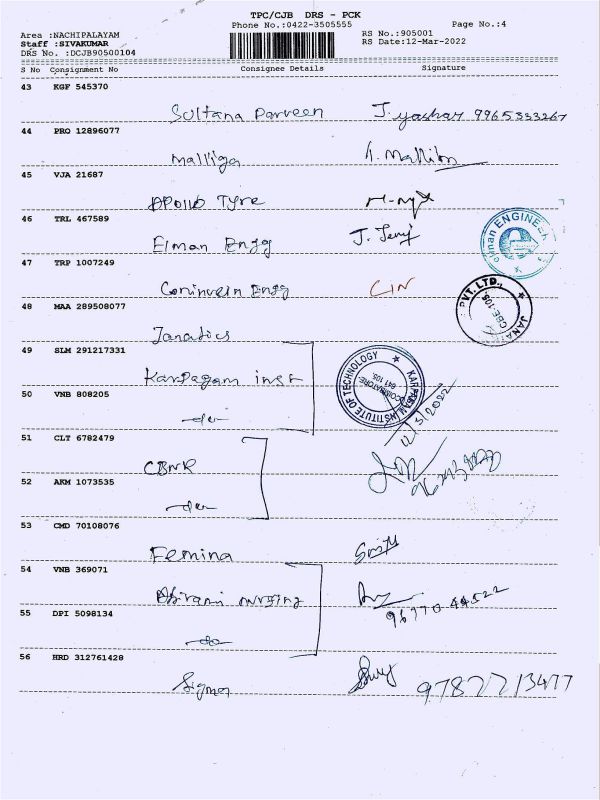 TPC/CJB DRS - PCK
Phone No.:0422-3505555 Page No.:4
Area :NACHIPALAYAM RS No.:905001
Staff :SIVAKUMAR RS Date:12-Mar-2022
DRS No. :DCJB90500104
S No Consignment No Consignee Details Signature
43 KGF 545370
Sultana Parveen J. yashar 9965333267
44 PRO 12896077
Malliga
45 VJA 21687
Apollo Tyre
46 TRL 467589
Elman Engg
47 TRP 1007249
Engg CIN
48 MAA 289508077
Janatics
49 SLM 291217331
Karpagam inst
50 VNB 808205
do
51 CLT 6782479
CBNR
52 AKM 1073535
do
53 CMD 70108076
Femina
54 VNB 369071
Abirami nursing
55 DPI 5098134
do
96770 44522
56 HRD 312761428
Sigma 9787713477
elman ENGINEER
PVT. LTD.,
CBE-105
JANA
KARPAGAM INSTITUTE OF TECHNOLOGY
COIMBATORE
641 105.
12/3/2022